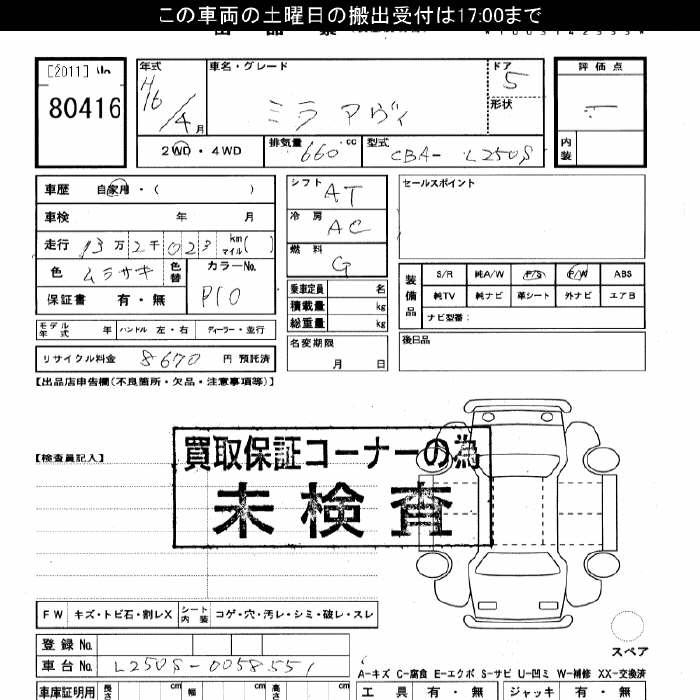 この車両の土曜日の搬出受付は17:00まで
[2011]
80416
年式 車名・グレード ドア 評価点
H16/4月 ミラアヴィ 5
形状
2WD・4WD 排気量 660 cc 型式 CBA-L250S 内装
車歴 自家用・( )
シフト AT
セールスポイント
車検 年 月
冷房 AC
走行 13万2千023 km マイル( )
燃料 G
色 ムラサキ 色替 カラーNo. P10
保証書 有・無
乗車定員 名
積載量 kg
総重量 kg
装備品 S/R 純A/W P/S P/W ABS
純TV 純ナビ 革シート 外ナビ エアB
ナビ型番:
モデル年式 年 ハンドル 左・右 ディーラー・並行
名変期限 月 日
後日品
リサイクル料金 8670 円 預託済
【出品店申告欄(不良箇所・欠品・注意事項等)】
【検査員記入】
買取保証コーナーの為
未検査
FW キズ・トビ石・割レX シート内装 コゲ・穴・汚レ・シミ・破レ・スレ
スペア
登録No.
車台No. L250S-0058551
A-キズ C-腐食 E-エクボ S-サビ U-凹ミ W-補修 XX-交換済
車庫証明用 長さ cm 幅 cm 高さ cm 工具 有・無 ジャッキ 有・無